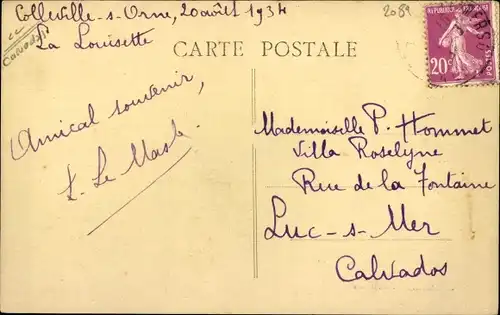 Colleville-s-Orne, 20 août 1934
La Louisette
Calvados
2089
CARTE POSTALE
REPUBLIQUE FRANÇAISE
20c
POSTES
Amical souvenir,
Mademoiselle P. Hommet
Villa Roselyne
Rue de la Fontaine
Luc-s-Mer
Calvados